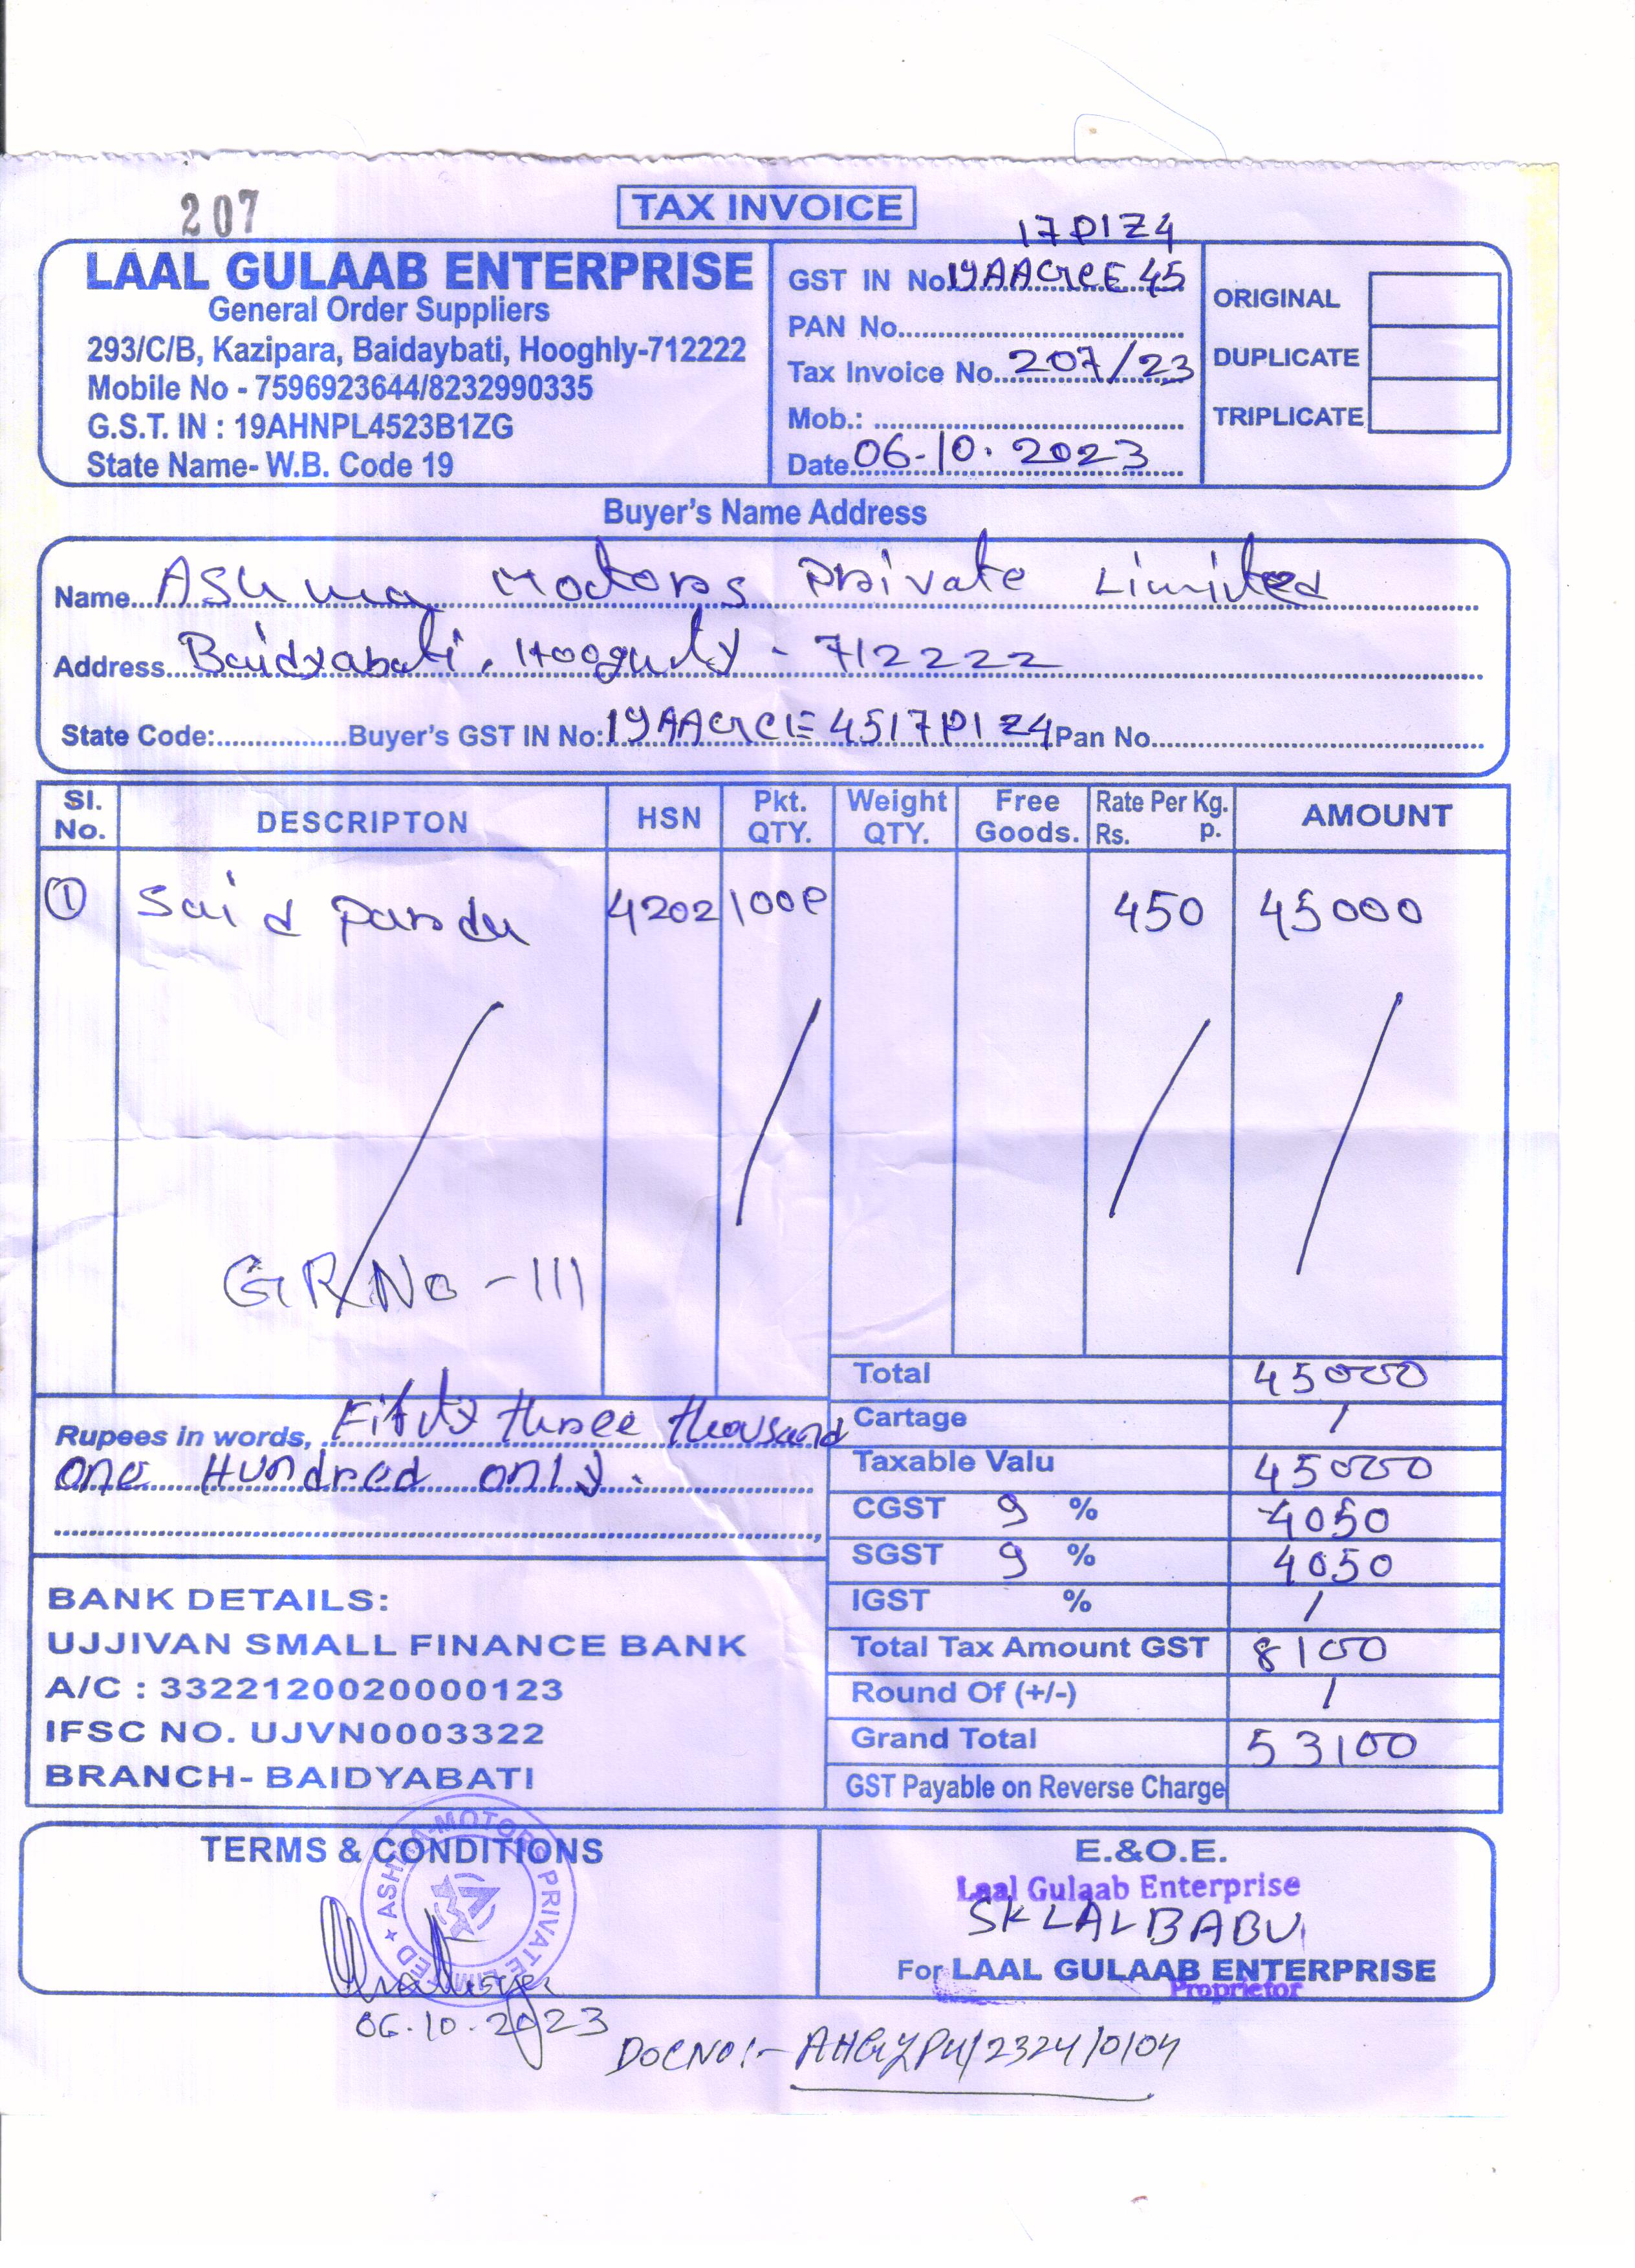 207
TAX INVOICE
LAAL GULAAB ENTERPRISE
General Order Suppliers
293/C/B, Kazipara, Baidaybati, Hooghly-712222
Mobile No - 7596923644/8232990335
G.S.T. IN : 19AHNPL4523B1ZG
State Name- W.B. Code 19
17P1Z4
GST IN No. 19AAGCE45
PAN No.
Tax Invoice No. 207/23
Mob.:
Date 06.10.2023
ORIGINAL
DUPLICATE
TRIPLICATE
Buyer's Name Address
Name Ashma Motors Private Limited
Address Baidyabati, Hooghly - 712222
State Code: Buyer's GST IN No: 19AAGCE4517P1Z4 Pan No.
Sl. No. DESCRIPTON HSN Pkt. QTY. Weight QTY. Free Goods. Rate Per Kg. Rs. p. AMOUNT
① 4202 100P 450 45000
GR/No - 111
Total 45000
Cartage /
Taxable Valu 45000
CGST 9 % 4050
SGST 9 % 4050
IGST % /
Total Tax Amount GST 8100
Round Of (+/-) /
Grand Total 53100
GST Payable on Reverse Charge
Rupees in words, Fifty three thousand
one Hundred only.
BANK DETAILS:
UJJIVAN SMALL FINANCE BANK
A/C : 3322120020000123
IFSC NO. UJVN0003322
BRANCH- BAIDYABATI
TERMS & CONDITIONS
ASHMA MOTORS PRIVATE LIMITED
06.10.2023
E.&O.E.
Laal Gulaab Enterprise
SK LAL BABU
For LAAL GULAAB ENTERPRISE
Proprietor
DOCNO:-